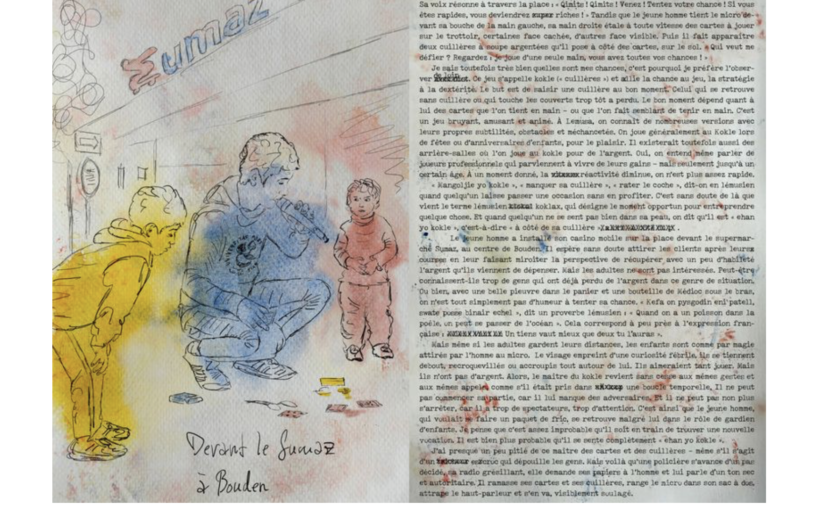 Sumaz
Devant le Sumaz
à Bouden
Sa voix résonne à travers la place : « Qimits ! Qimits ! Venez ! Tentez votre chance ! Si vous
êtes rapides, vous deviendrez super riches ! » Tandis que le jeune homme tient le micro de-
vant sa bouche de la main gauche, sa main droite étale à toute vitesse des cartes à jouer
sur le trottoir, certaines face cachée, d'autres face visible. Puis il fait apparaître
deux cuillères à soupe argentées qu'il pose à côté des cartes, sur le sol. « Qui veut me
défier ? Regardez : je joue d'une seule main, vous avez toutes vos chances ! »
Je sais toutefois très bien quelles sont mes chances, c'est pourquoi je préfère l'obser-
ver de loin. Ce jeu s'appelle kokle (« cuillères ») et allie la chance au jeu, la stratégie
à la dextérité. Le but est de saisir une cuillère au bon moment. Celui qui se retrouve
sans cuillère ou qui touche les couverts trop tôt a perdu. Le bon moment dépend quant à
lui des cartes que l'on tient en main – ou que l'on fait semblant de tenir en main. C'est
un jeu bruyant, amusant et animé. À Lemusa, on connaît de nombreuses versions avec
leurs propres subtilités, obstacles et méchancetés. On joue généralement au Kokle lors
de fêtes ou d'anniversaires d'enfants, pour le plaisir. Il existerait toutefois aussi des
arrière-salles où l'on joue au kokle pour de l'argent. Oui, on entend même parler de
joueurs professionnels qui parviennent à vivre de leurs gains – mais seulement jusqu'à un
certain âge. À un moment donné, la réactivité diminue, on n'est plus assez rapide.
« Kangoljie yo kokle », « manquer sa cuillère », « rater le coche », dit-on en lémusien
quand quelqu'un laisse passer une occasion sans en profiter. C'est sans doute de là que
vient le terme lémusien koklax, qui désigne le moment opportun pour entreprendre
quelque chose. Et quand quelqu'un ne se sent pas bien dans sa peau, on dit qu'il est « ehan
yo kokle », c'est-à-dire « à côté de sa cuillère ».
Le jeune homme a installé son casino mobile sur la place devant le supermar-
ché Sumaz, au centre de Bouden. Il espère sans doute attirer les clients après leurs
courses en leur faisant miroiter la perspective de récupérer avec un peu d'habileté
l'argent qu'ils viennent de dépenser. Mais les adultes ne sont pas intéressés. Peut-être
connaissent-ils trop de gens qui ont déjà perdu de l'argent dans ce genre de situation.
Ou bien, avec une belle pleuvre dans le panier et une bouteille de Rédloc sous le bras,
on n'est tout simplement pas d'humeur à tenter sa chance. « Kefa on pysgodin enl'patell,
swate posse binair echel », dit un proverbe lémusien : « Quand on a un poisson dans la
poêle, on peut se passer de l'océan ». Cela correspond à peu près à l'expression fran-
çaise : Un tiens vaut mieux que deux tu l'auras ».
Mais même si les adultes gardent leurs distances, les enfants sont comme par magie
attirés par l'homme au micro. Le visage empreint d'une curiosité fébrile, ils se tiennent
debout, recroquevillés ou accroupis tout autour de lui. Ils aimeraient tant jouer. Mais
ils n'ont pas d'argent. Alors, le maître du kokle revient sans cesse aux mêmes gestes et
aux mêmes appels comme s'il était pris dans une boucle temporelle. Il ne peut
pas commencer sa partie, car il lui manque des adversaires. Et il ne peut pas non plus
s'arrêter, car il a trop de spectateurs, trop d'attention. C'est ainsi que le jeune homme,
qui voulait se faire un paquet de fric, se retrouve malgré lui dans le rôle de gardien
d'enfants. Je pense que c'est assez improbable qu'il soit en train de trouver une nouvelle
vocation. Il est bien plus probable qu'il se sente complètement « ehan yo kokle ».
J'ai presque un peu pitié de ce maître des cartes et des cuillères – même s'il s'agit
d'un escroc qui dépouille les gens. Mais voilà qu'une policière s'avance d'un pas
décidé, sa radio grésillant, elle demande ses papiers à l'homme et lui parle d'un ton sec
et autoritaire. Il ramasse ses cartes et ses cuillères, range le micro dans son sac à dos,
attrape le haut-parleur et s'en va, visiblement soulagé.